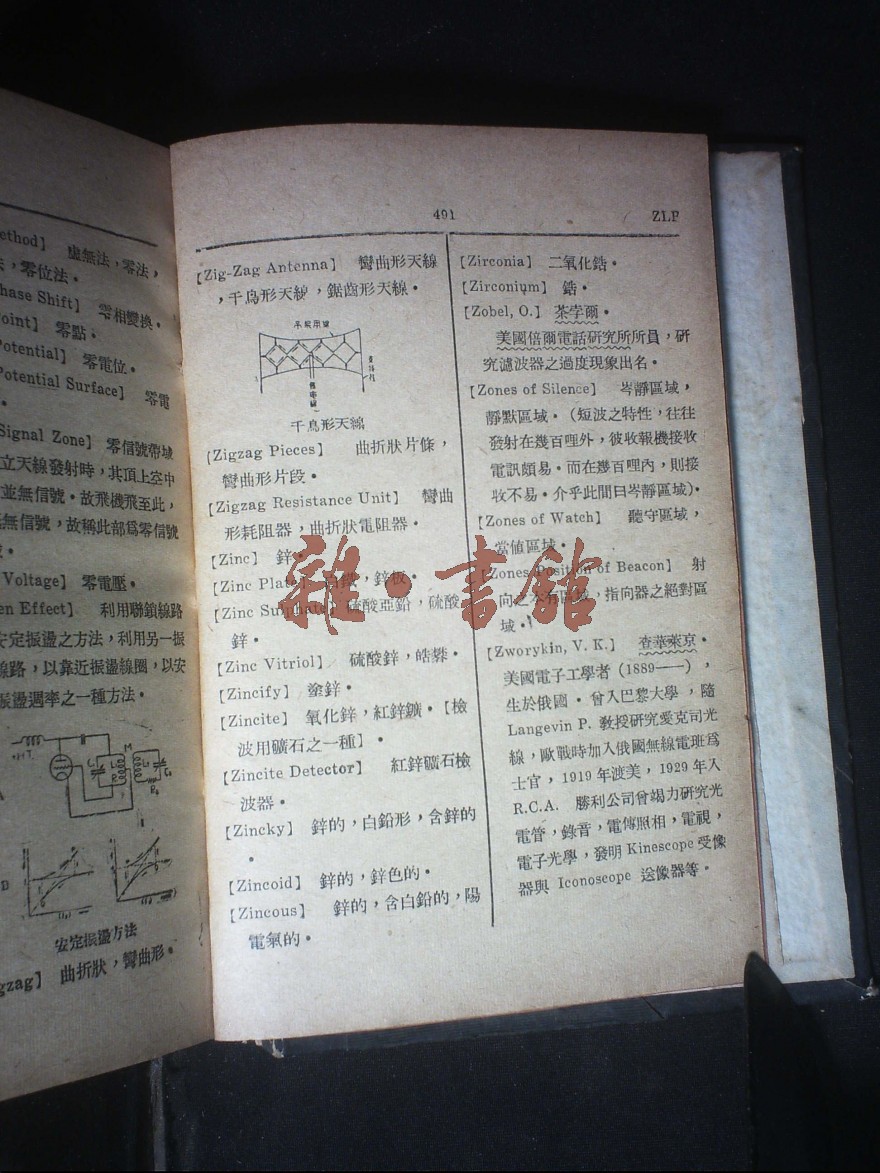 ethod】 虛無法，零法，
法，零位法。
hase Shift】 零相變換。
oint】 零點。
Potential】 零電位。
Potential Surface】 零電
。
Signal Zone】 零信號帶域
立天線發射時，其頂上空中
並無信號。故飛機飛至此，
無信號，故稱此部爲零信號
。
Voltage】 零電壓。
en Effect】 利用聯鎖線路
安定振盪之方法，利用另一振
線路，以靠近振盪線圈，以安
振盪週率之一種方法。
安定振盪方法
gzag】 曲折狀，彎曲形。
491
ZLP
【Zig-Zag Antenna】 彎曲形天線
，千鳥形天線，鋸齒形天線。
千鳥形天線
【Zigzag Pieces】 曲折狀片條，
彎曲形片段。
【Zigzag Resistance Unit】 彎曲
形耗阻器，曲折狀電阻器。
【Zinc】 鋅。
【Zinc Plate】 白鐵，鋅板。
【Zinc Sulphate】 硫酸亞鉛，硫酸
鋅。
【Zinc Vitriol】 硫酸鋅，皓礬。
【Zincify】 塗鋅。
【Zincite】 氧化鋅，紅鋅鑛。【檢
波用礦石之一種】。
【Zincite Detector】 紅鋅礦石檢
波器。
【Zincky】 鋅的，白鉛形，含鋅的
。
【Zincoid】 鋅的，鋅色的。
【Zincous】 鋅的，含白鉛的，陽
電氣的。
【Zirconia】 二氧化鋯。
【Zirconium】 鋯。
【Zobel, O.】 茶孛爾。
美國倍爾電話研究所所員，研
究濾波器之過度現象出名。
【Zones of Silence】 岑靜區域，
靜默區域。（短波之特性，往往
發射在幾百哩外，彼收報機接收
電訊頗易。而在幾百哩內，則接
收不易。介乎此間曰岑靜區域）。
【Zones of Watch】 聽守區域，
當值區域。
【Zones Position of Beacon】 射
向之本有區域，指向器之絕對區
域。
【Zworykin, V. K.】 查華萊京。
美國電子工學者（1889——），
生於俄國。曾入巴黎大學，隨
Langevin P. 敎授研究愛克司光
線，歐戰時加入俄國無線電班爲
士官，1919年渡美，1929年入
R.C.A. 勝利公司曾竭力研究光
電管，錄音，電傳照相，電視，
電子光學，發明 Kinescope 受像
器與 Iconoscope 送像器等。
雜·書館